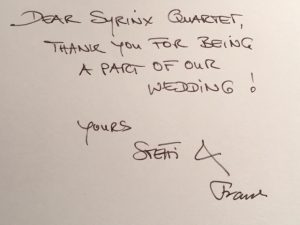 DEAR SYRINX QUARTET,
THANK YOU FOR BEING
A PART OF OUR
WEDDING!
YOURS
STEFFI &